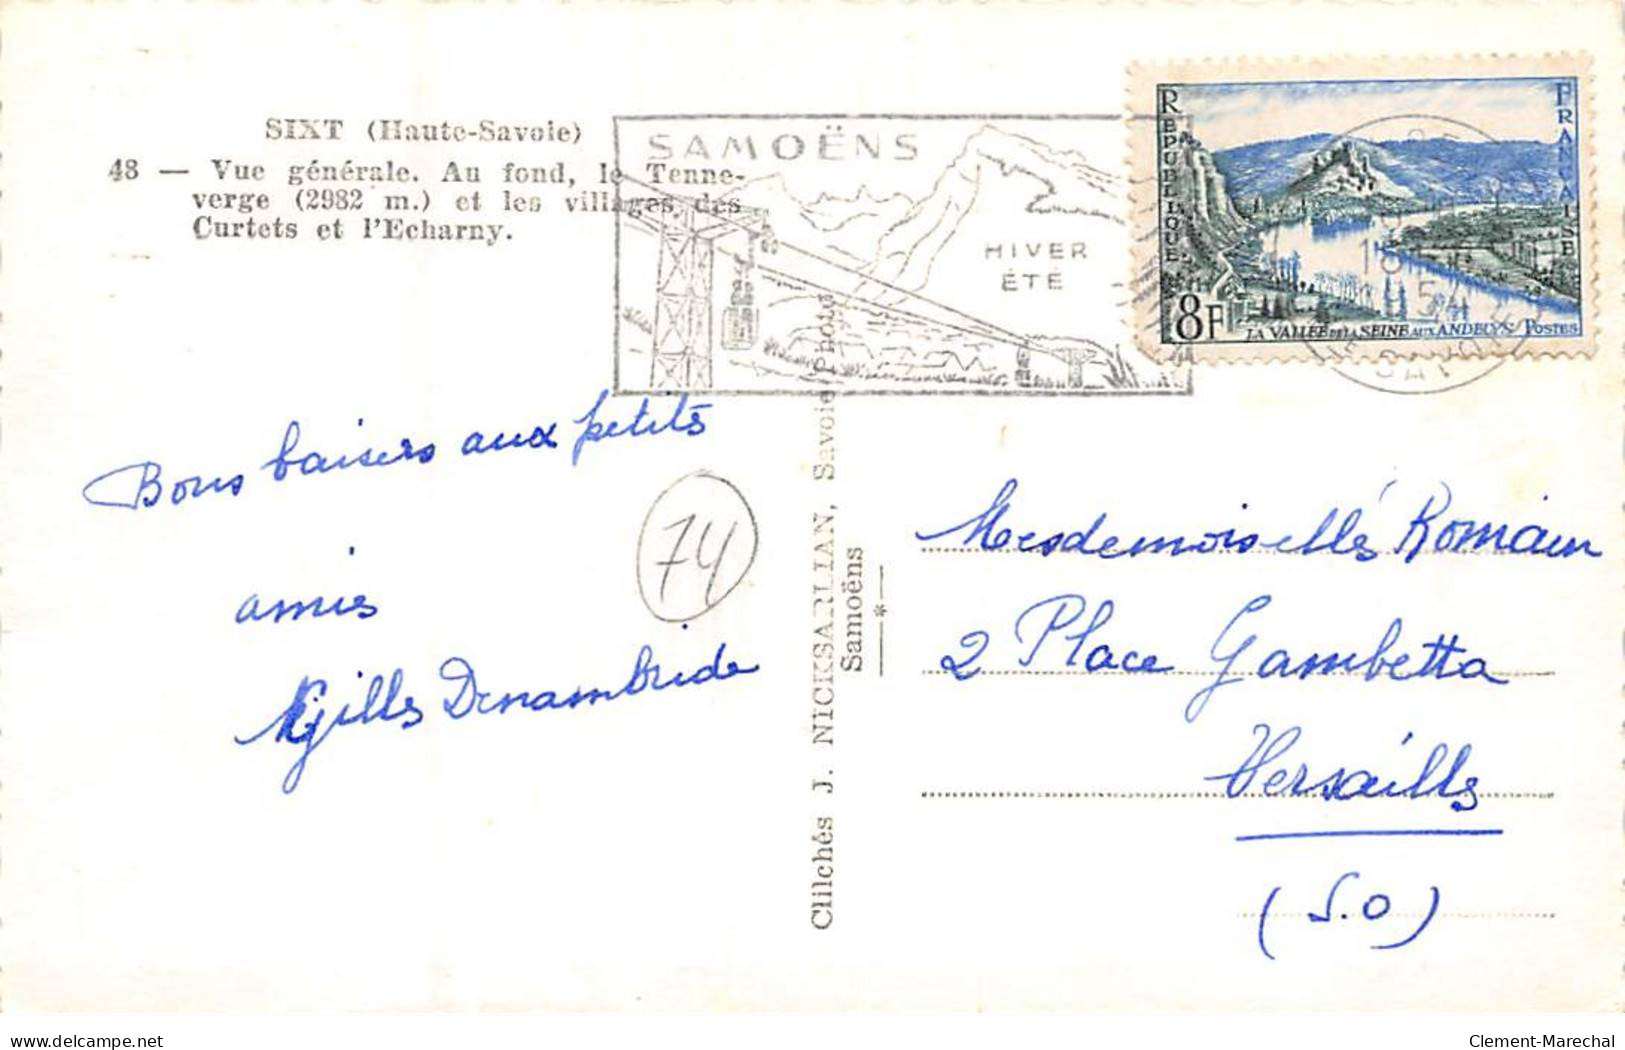 SIXT (Haute-Savoie)
48 — Vue générale. Au fond, le Tenne-
verge (2982 m.) et les villages des
Curtets et l'Echarny.
SAMOËNS
HIVER
ÉTÉ
RÉPUBLIQUE
FRANÇAISE
8F
LA VALLÉE DE LA SEINE AUX ANDELYS
POSTES
Bons baisers aux petits
amis
Gilles
74
Clichés J. NICKSARLIAN, Savoie Photo
Samoëns
Mesdemoiselles Romain
2 Place Gambetta
Versailles
(S.O)
delcampe.net
Clement-Marechal